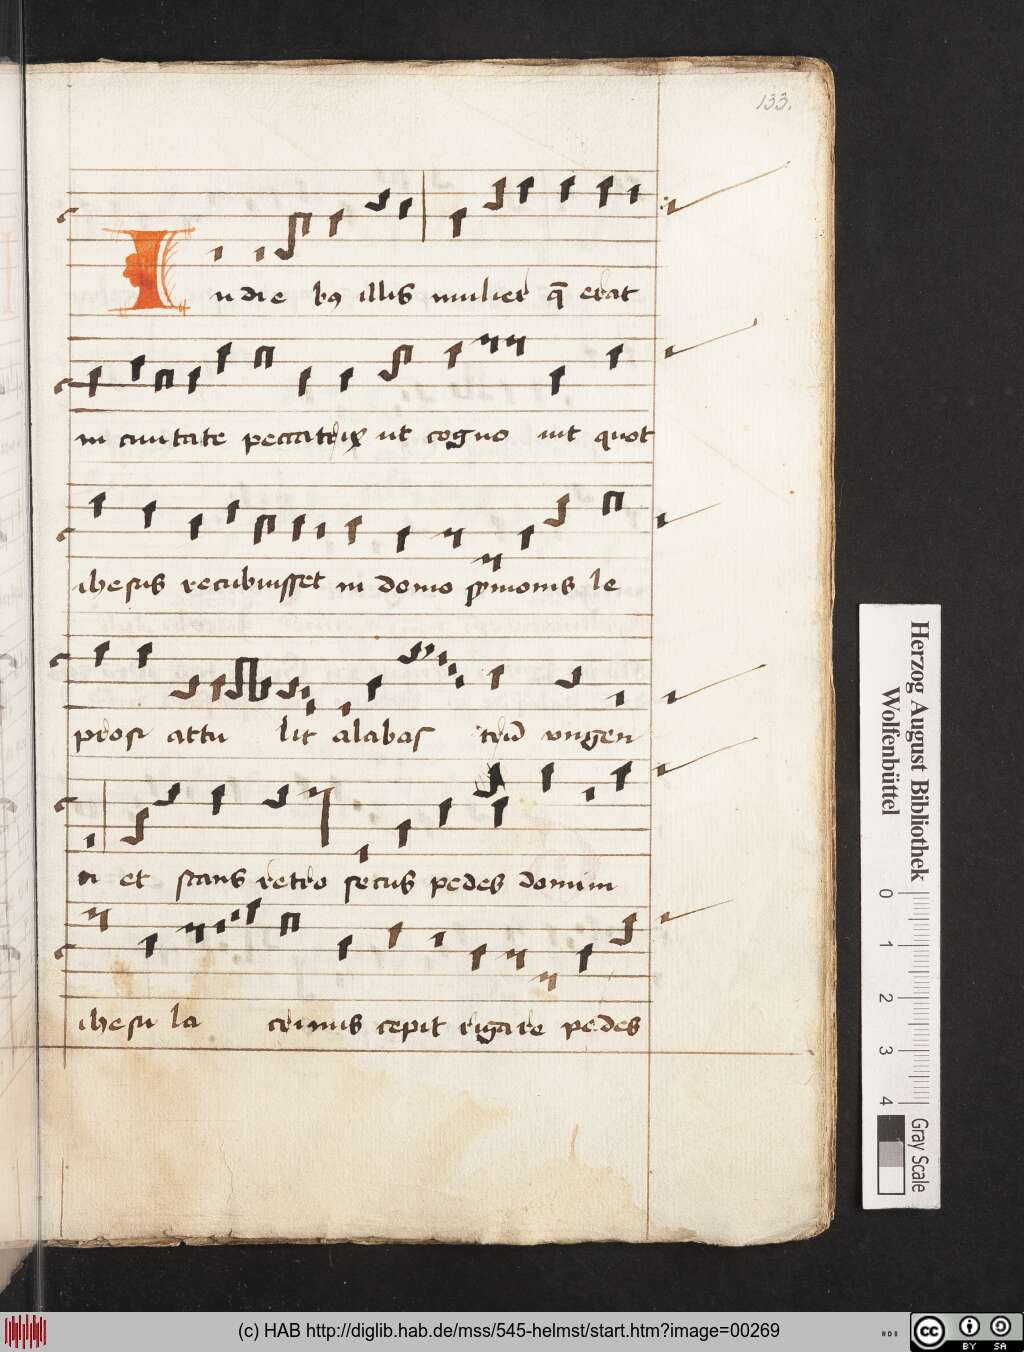 133.
In die bꝰ illis mulier q̄ erat
in ciuitate peccatrix ut cogno uit quot
ihesus recubuisset in domo symonis le
prosi attu lit alabas trū vngen
ti et stans retro secus pedes domini
ihesu la crimis cepit rigare pedes
Herzog August Bibliothek
Wolfenbüttel
0 1 2 3 4
Gray Scale
(c) HAB http://diglib.hab.de/mss/545-helmst/start.htm?image=00269
cc BY SA